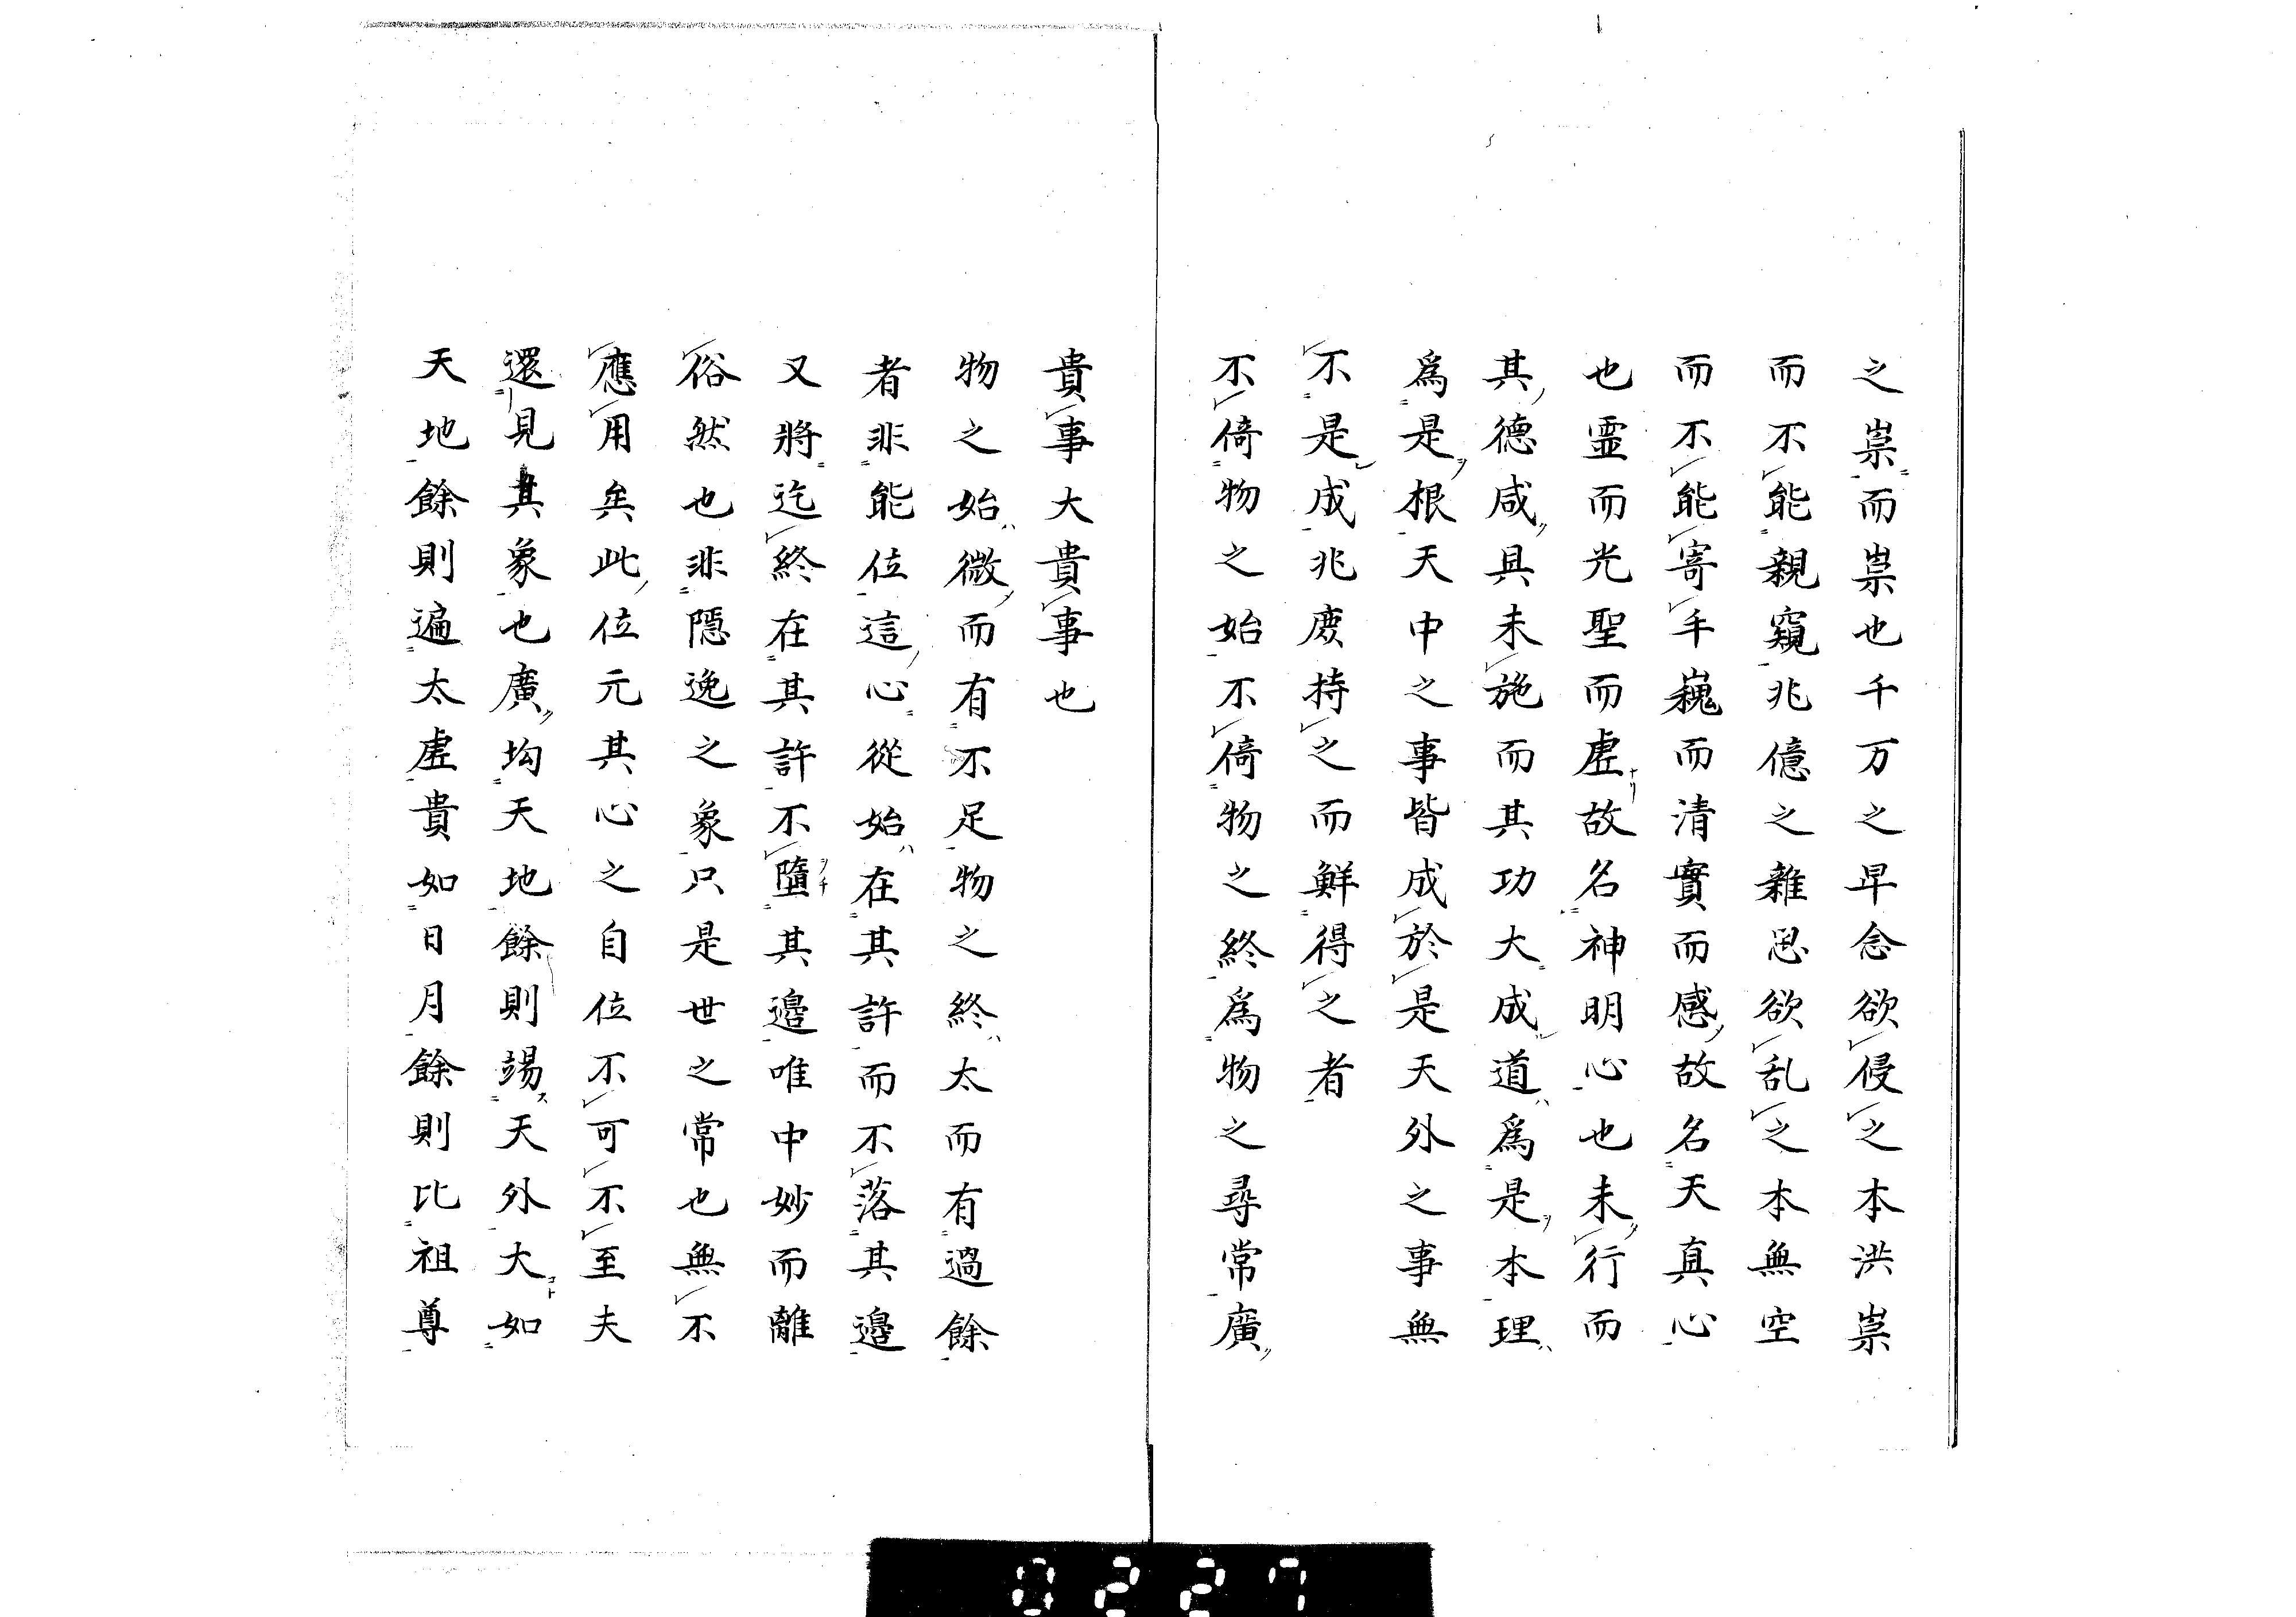 之祟而祟也千万之早念欲侵之本洪祟
而不能親窺兆億之雜思欲乱之本無空
而不能寄手巍而清實而感故名天真心
也霊而光聖而虚故名神明心也未行而
其德咸具未施而其功大成道為是本理
為是根天中之事皆成於是天外之事無
不是成兆庶持之而鮮得之者
不倚物之始不倚物之終為物之尋常廣
貴事大貴事也
物之始微而有不足物之終太而有過餘
者非能位這心從始在其許而不落其邉
又將迄終在其許不墮其邉唯中妙而離
俗然也非隱逸之象只是世之常也無不
應用矣此位元其心之自位不可不至夫
還見其象也廣均天地餘則踢天外大如
天地餘則遍太虚貴如日月餘則比祖尊
0227